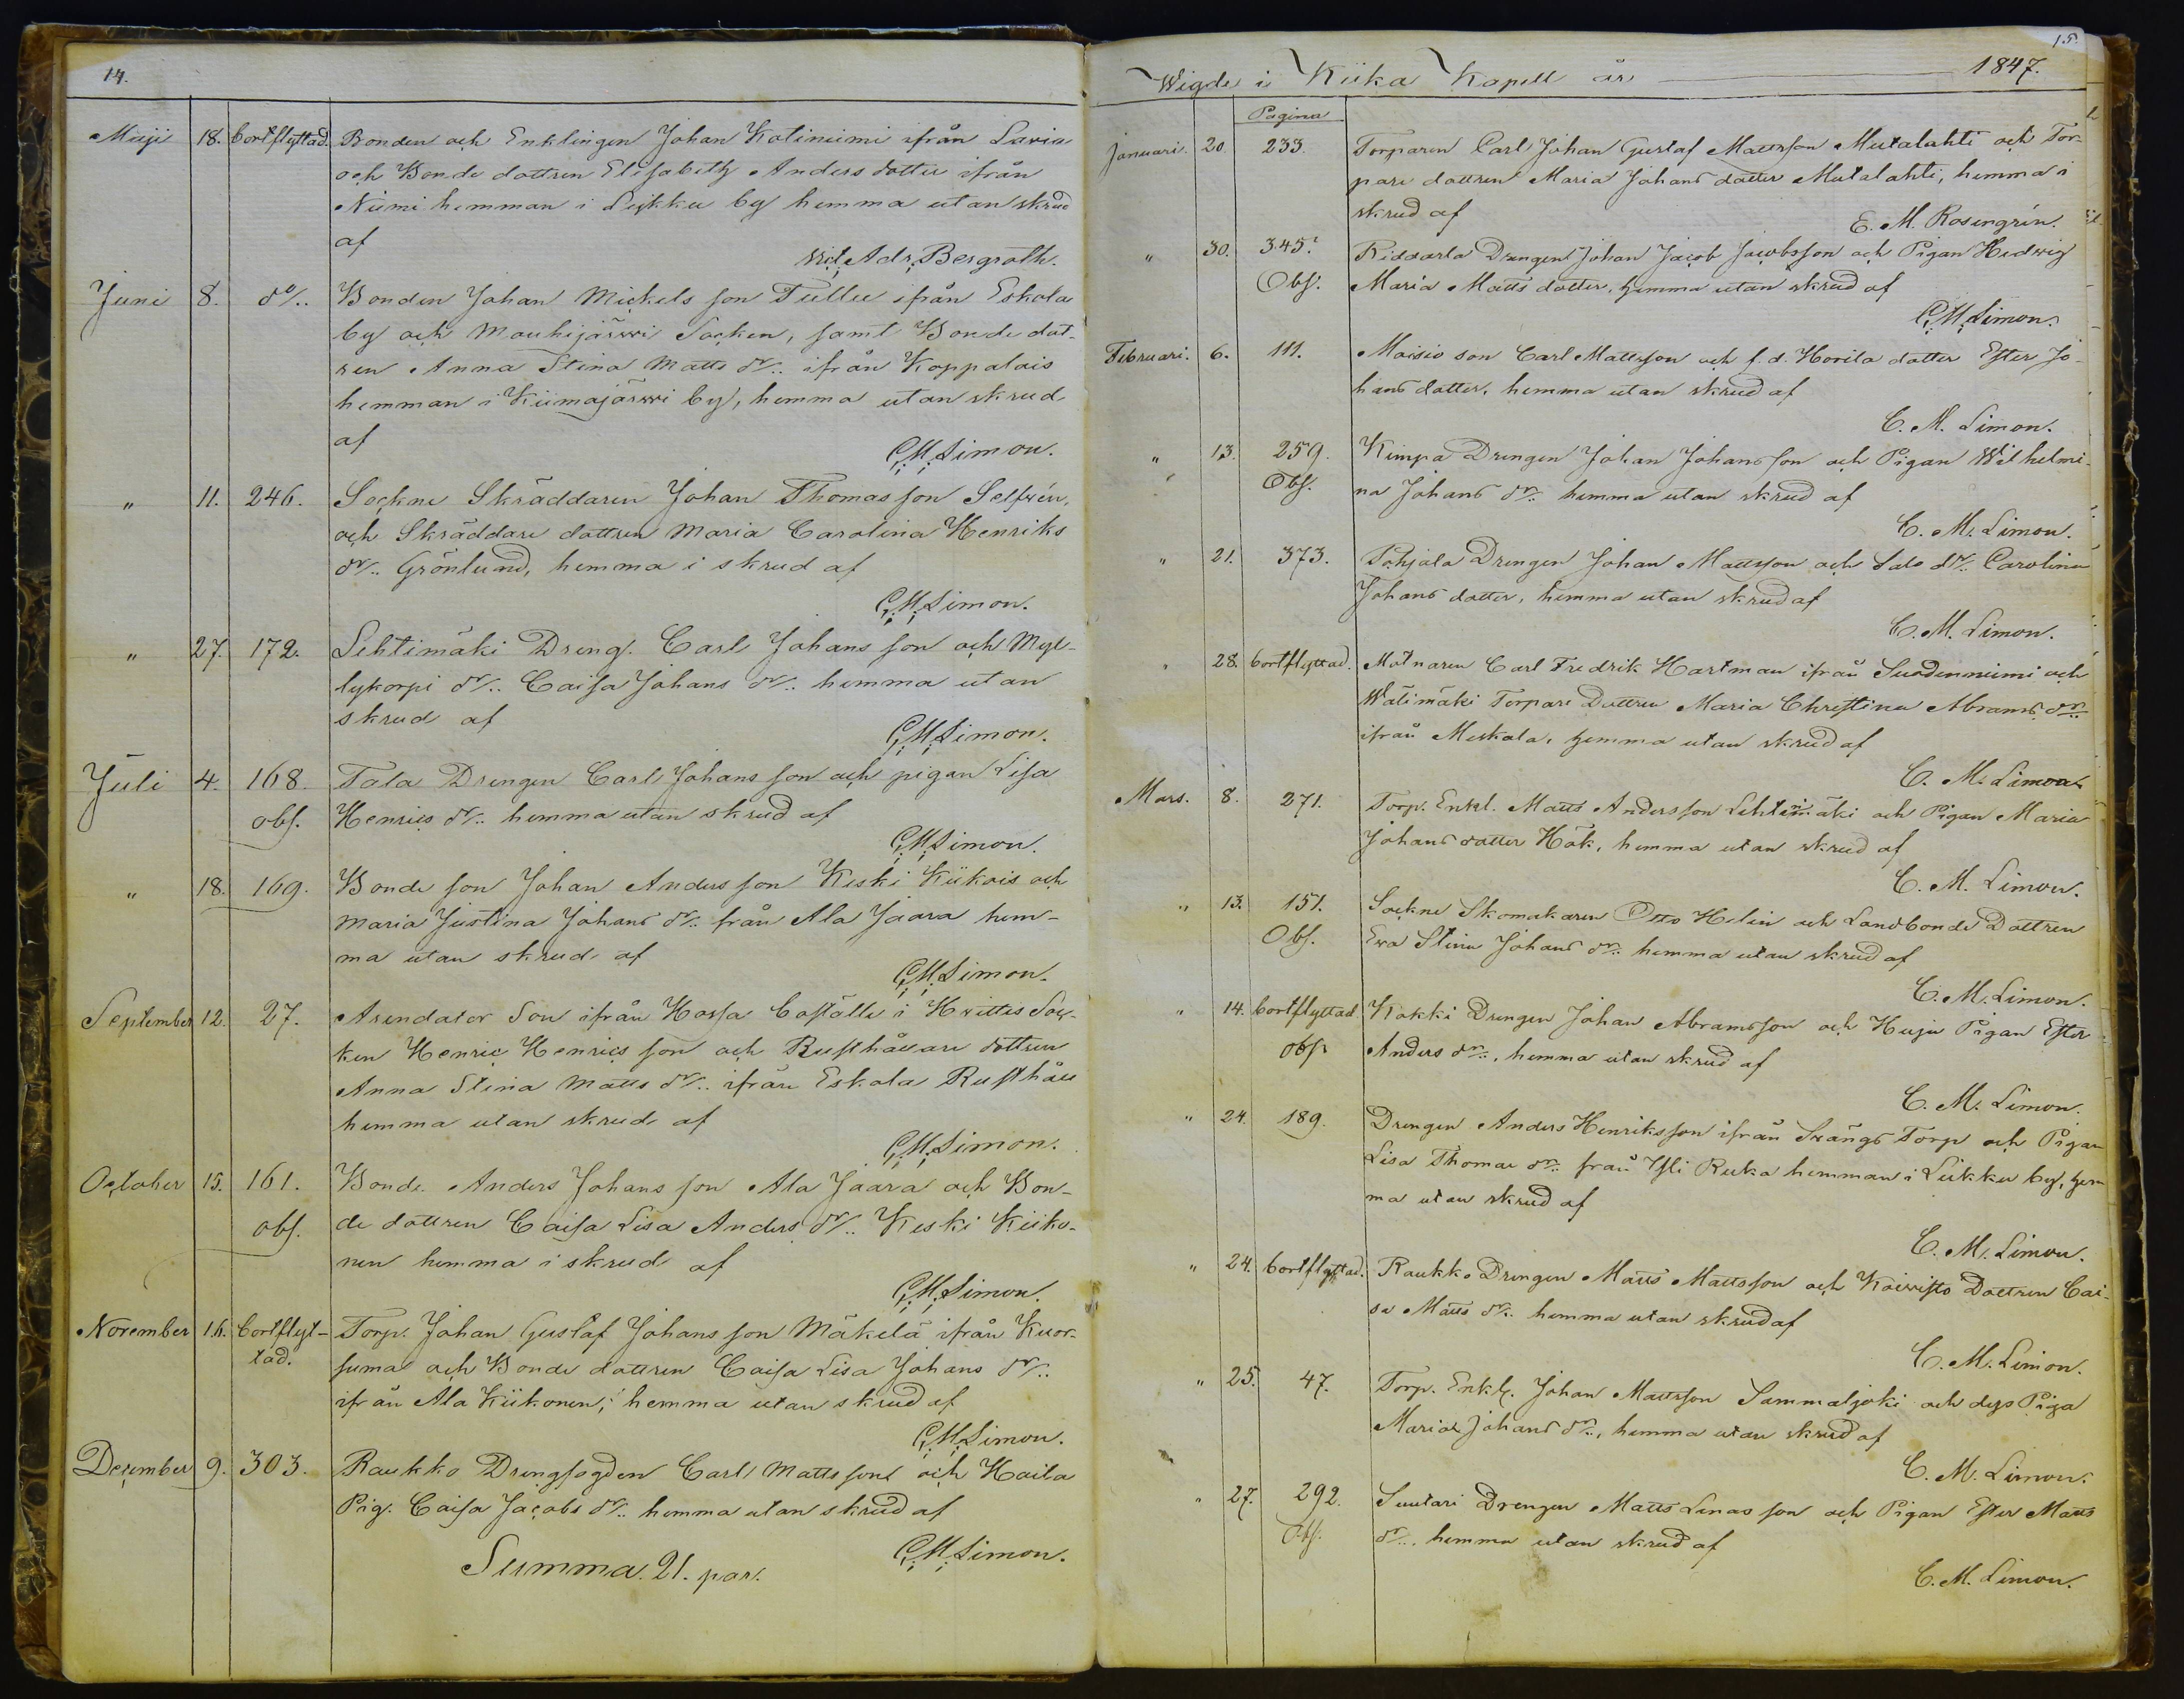 14.
Maji 18. bortflyttad. Bonden och Enklingen Johan Kotiniemi ifrån Lavia
och Bonde dottren Elisabeth Anders dotter ifrån
Niemi hemman i Liikku by hemma utan skrud
af
Adr. Bergroth.
Juni 8. do/.. Bonden Johan Mickels son Tullu ifrån Eskola
by och Mouhijärwi Socken, samt Bonde dot-
ren Anna Stina Matts dr/.. ifrån Koppalais
hemman i Kiimajärwi by, hemma utan skrud
af
C. M. Limon.
" 11. 246. Sockne Skräddaren Johan Thomas son Selfwén,
och Skräddare dottren Maria Carolina Henriks
dr/.. Grönlund, hemma i skrud af
C. M. Limon.
" 27. 172. Lehtimäki Dreng. Carl Johans son och Myl-
lykorpi dr/.. Caisa Johans dr/.. hemma utan
skrud af
C. M. Limon.
Juli 4. 168. Tala Drengen Carl Johans son och pigan Lisa
obs. Henrics dr/.. hemma utan skrud af
C. M. Limon.
" 18. 169. Bonde son Johan Anders son Keski Kiikois och
Maria Justina Johans dr/.. från Ala Jaara hem-
ma utan skrud af
C. M. Limon.
September 12. 27. Arendator Son ifrån Hossa Boställe i Hwittis Soc-
ken Henric Henrics son och Rusthållare dottren
Anna Stina Matts dr/.. ifrån Eskola Rusthåll
hemma utan skrud af
C. M. Limon.
October 15. 161. Bonde Anders Johans son Ala Jaara och Bon-
obs. de dottren Caisa Lisa Anders dr/.. Keski Kiiko-
nen hemma i skrud af
C. M. Limon.
November 16. bortflyt- Torp. Johan Gustaf Johans son Mäkelä ifrån Kuor-
tad. suma och Bonde dottren Caisa Lisa Johans dr/..
ifrån Ala Kiikonen, hemma utan skrud af
C. M. Limon.
December 9. 303. Raukko Drengfogden Carl Matts son och Haila
Pig. Caisa Jacobs dr/.. hemma utan skrud af
C. M. Limon.
Summa. 21. par.
15.
Wigde i Kiika Kapell år 1847.
Pagina
Januari. 20. 233. Torparen Carl Johan Gustaf Mattsson Mutalahti och Tor-
pare dottren Maria Johans dotter Mutalahti, hemma i
skrud af
E. M. Rosengrén.
" 30. 345. Riddarla Drengen Johan Jacob Jacobsson och Pigan Hedwig
Obs. Maria Matts dotter, hemma utan skrud af
C. M. Limon.
Februari. 6. 111. Moisio son Carl Mattsson och f. d. Horila dotter Ester Jo-
hans dotter, hemma utan skrud af
C. M. Limon.
" 13. 259. Kimpa Drengen Johan Johans son och Pigan Wilhelmi-
Obs. na Johans dr/.. hemma utan skrud af
C. M. Limon.
" 21. 373. Pohjala Drengen Johan Mattsson och Salo dr/.. Carolina
Johans dotter, hemma utan skrud af
C. M. Limon.
" 28. bortflyttad. Molnaren Carl Fredrik Hartman ifrån Suodenniemi och
Wätimäki Torpare Dottren Maria Christina Abrams dr/..
ifrån Meskala, hemma utan skrud af
C. M. Limon.
Mars. 8. 271. Torp. Enkl. Matts Andersson Lehtimäki och Pigan Maria
Johans dotter Hök, hemma utan skrud af
C. M. Limon.
" 13. 151. Sockne Skomakaren Otto Helin och Landbonde Dottren
Obs. Ewa Stina Johans dr/.. hemma utan skrud af
C. M. Limon.
" 14. bortflyttad Kokki Drengen Johan Abramsson och Huju Pigan Ester
obs. Anders dr/.., hemma utan skrud af
C. M. Limon.
" 24. 189. Drengen Anders Henriksson ifrån Srängs Torp och Pigan
Lisa Thomae dr/.. från Yli Ruka hemman i Liikku by, hem-
ma utan skrud af
C. M. Limon.
" 24. bortflyttad. Raukko Drengen Matts Mattsson och Koiwisto Dottren Cai-
sa Matts dr/.. hemma utan skrud af
C. M. Limon.
" 25. 47. Torp. Enkl. Johan Mattsson Sammaljoki och dess Piga
Maria Johans dr/.., hemma utan skrud af
C. M. Limon.
" 27. 292. Suutari Drengen Matts Linas son och Pigan Ester Matts
Obs. dr/.. hemma utan skrud af
C. M. Limon.